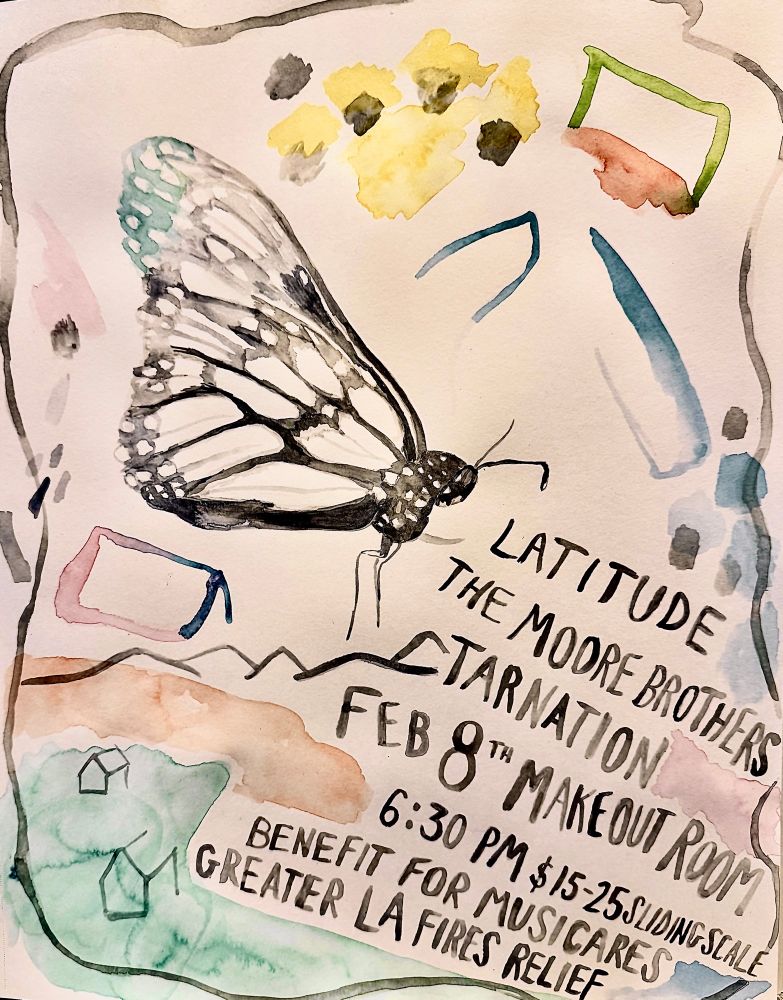 LATITUDE
THE MOORE BROTHERS
TARNATION
FEB 8TH MAKEOUT ROOM
6:30 PM $15-25 SLIDING SCALE
BENEFIT FOR MUSICARES
GREATER LA FIRES RELIEF